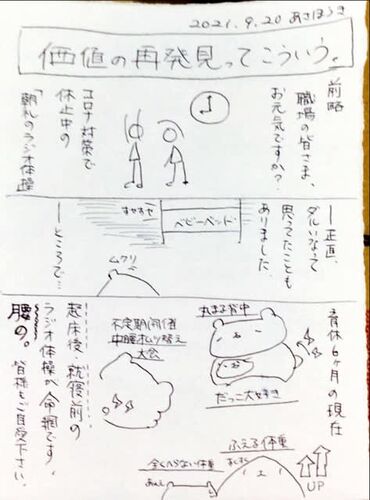 2021.9.20 あさぼらき
価値の再発見ってこういう。
前略
職場の皆さま、
お元気ですか？
コロナ対策で
休止中の
「朝礼のラジオ体操
―正直、
ダルいなって
思ってたことも
ありました。
すやすや
ベビーベッド
ムクリ
―ところで…
育休6ヶ月の現在
丸まる背中
だっこ大好き
不定期開催
中腰オムツ替え
大会
ふえる体重
全くへらない体重
UP
起床後、就寝前の
ラジオ体操が命綱です、
腰の。
皆様もご自愛下さい。